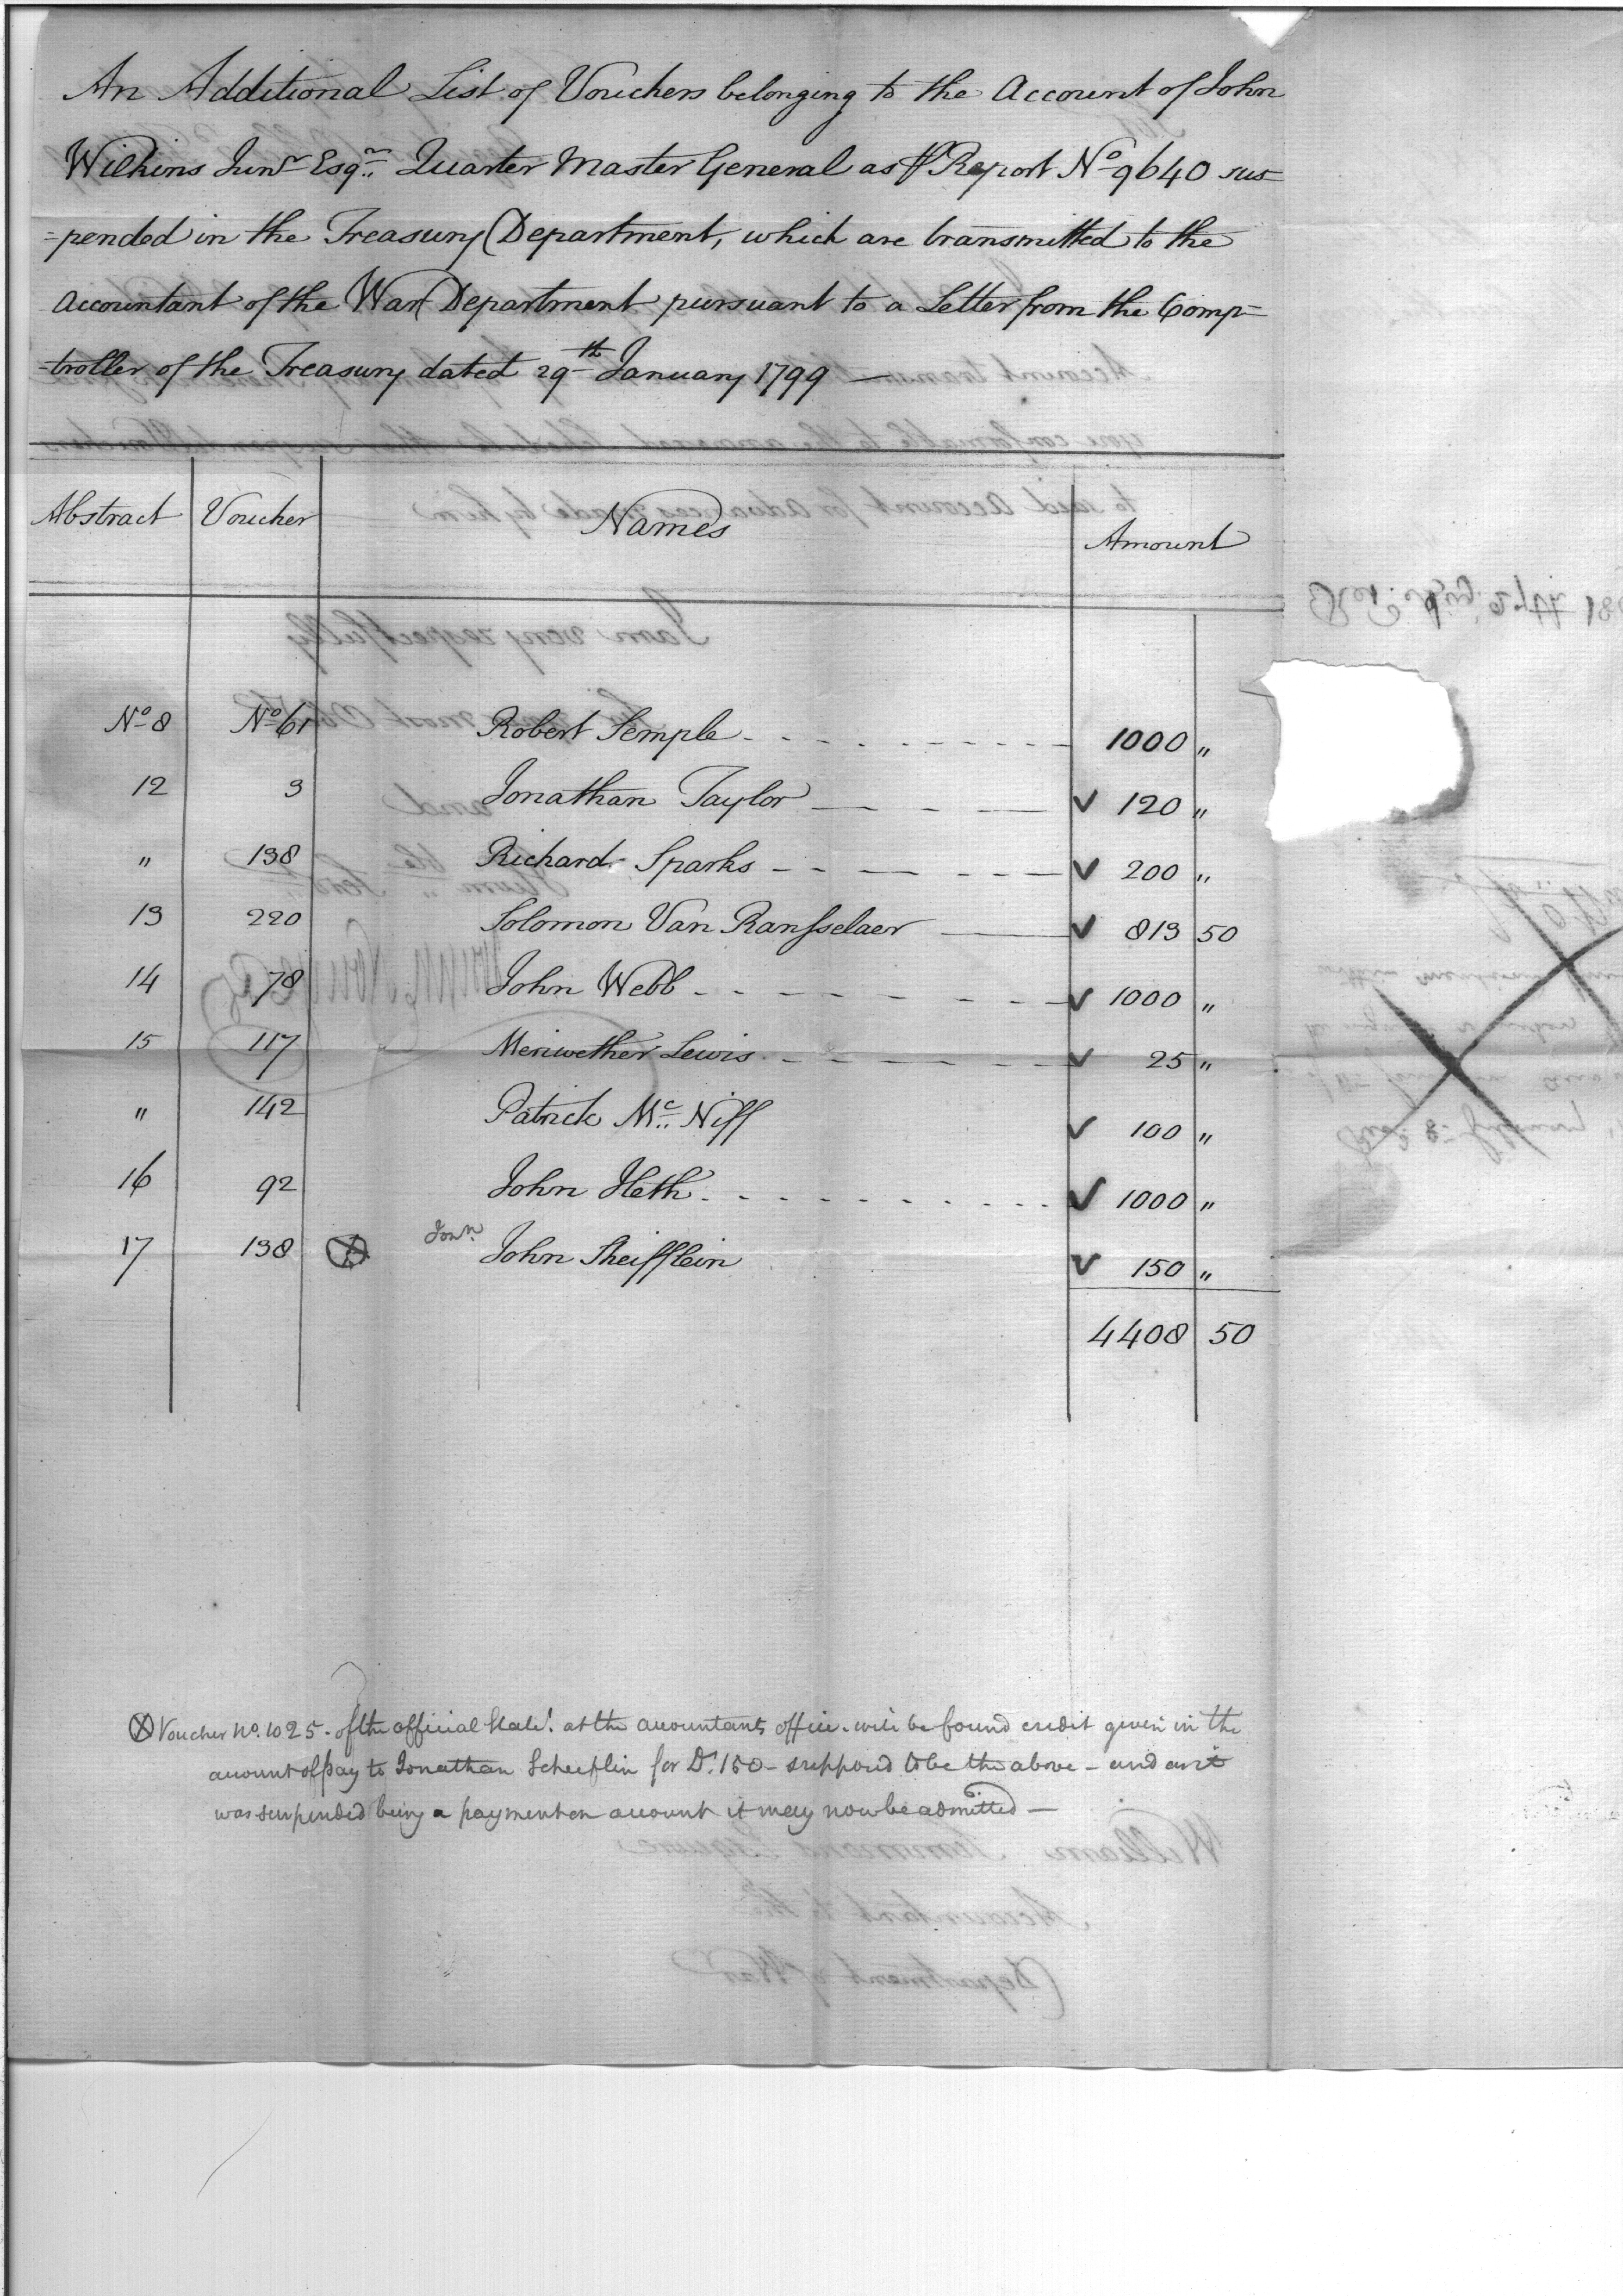 An Additional List of Vouchers belonging to the Account of John
Wilkins Junr Esqr. Quarter Master General as ⅌ Report No 9640 sus=
=pended in the Treasury Department, which are transmitted to the
Accountant of the War Department pursuant to a Letter from the Comp=
=troller of the Treasury dated 29th January 1799 —
Abstract Voucher Names Amount
No 8 No 61 Robert Semple 1000 "
12 3 Jonathan Taylor ✓ 120 "
" 138 Richard Sparks ✓ 200 "
13 220 Solomon Van Ransselaer ✓ 813 50
14 78 John Webb ✓ 1000 "
15 117 Meriwether Lewis ✓ 25 "
" 142 Patrick Mc Niff ✓ 100 "
16 92 John Heth ✓ 1000 "
Jonn.
17 138 ⊗ John Sheifflein ✓ 150 "
4408 50
⊗ Voucher No. 1025 - of the official Statet. at the accountants office - will be found credit given in the
account of pay to Jonathan Scheiflin for Ds. 150 - supposed to be the above - and as it
was suspended being a payment on account it may now be admitted —
William Simmons Esquire
Accountant to the
Department of War
I am very respectfully